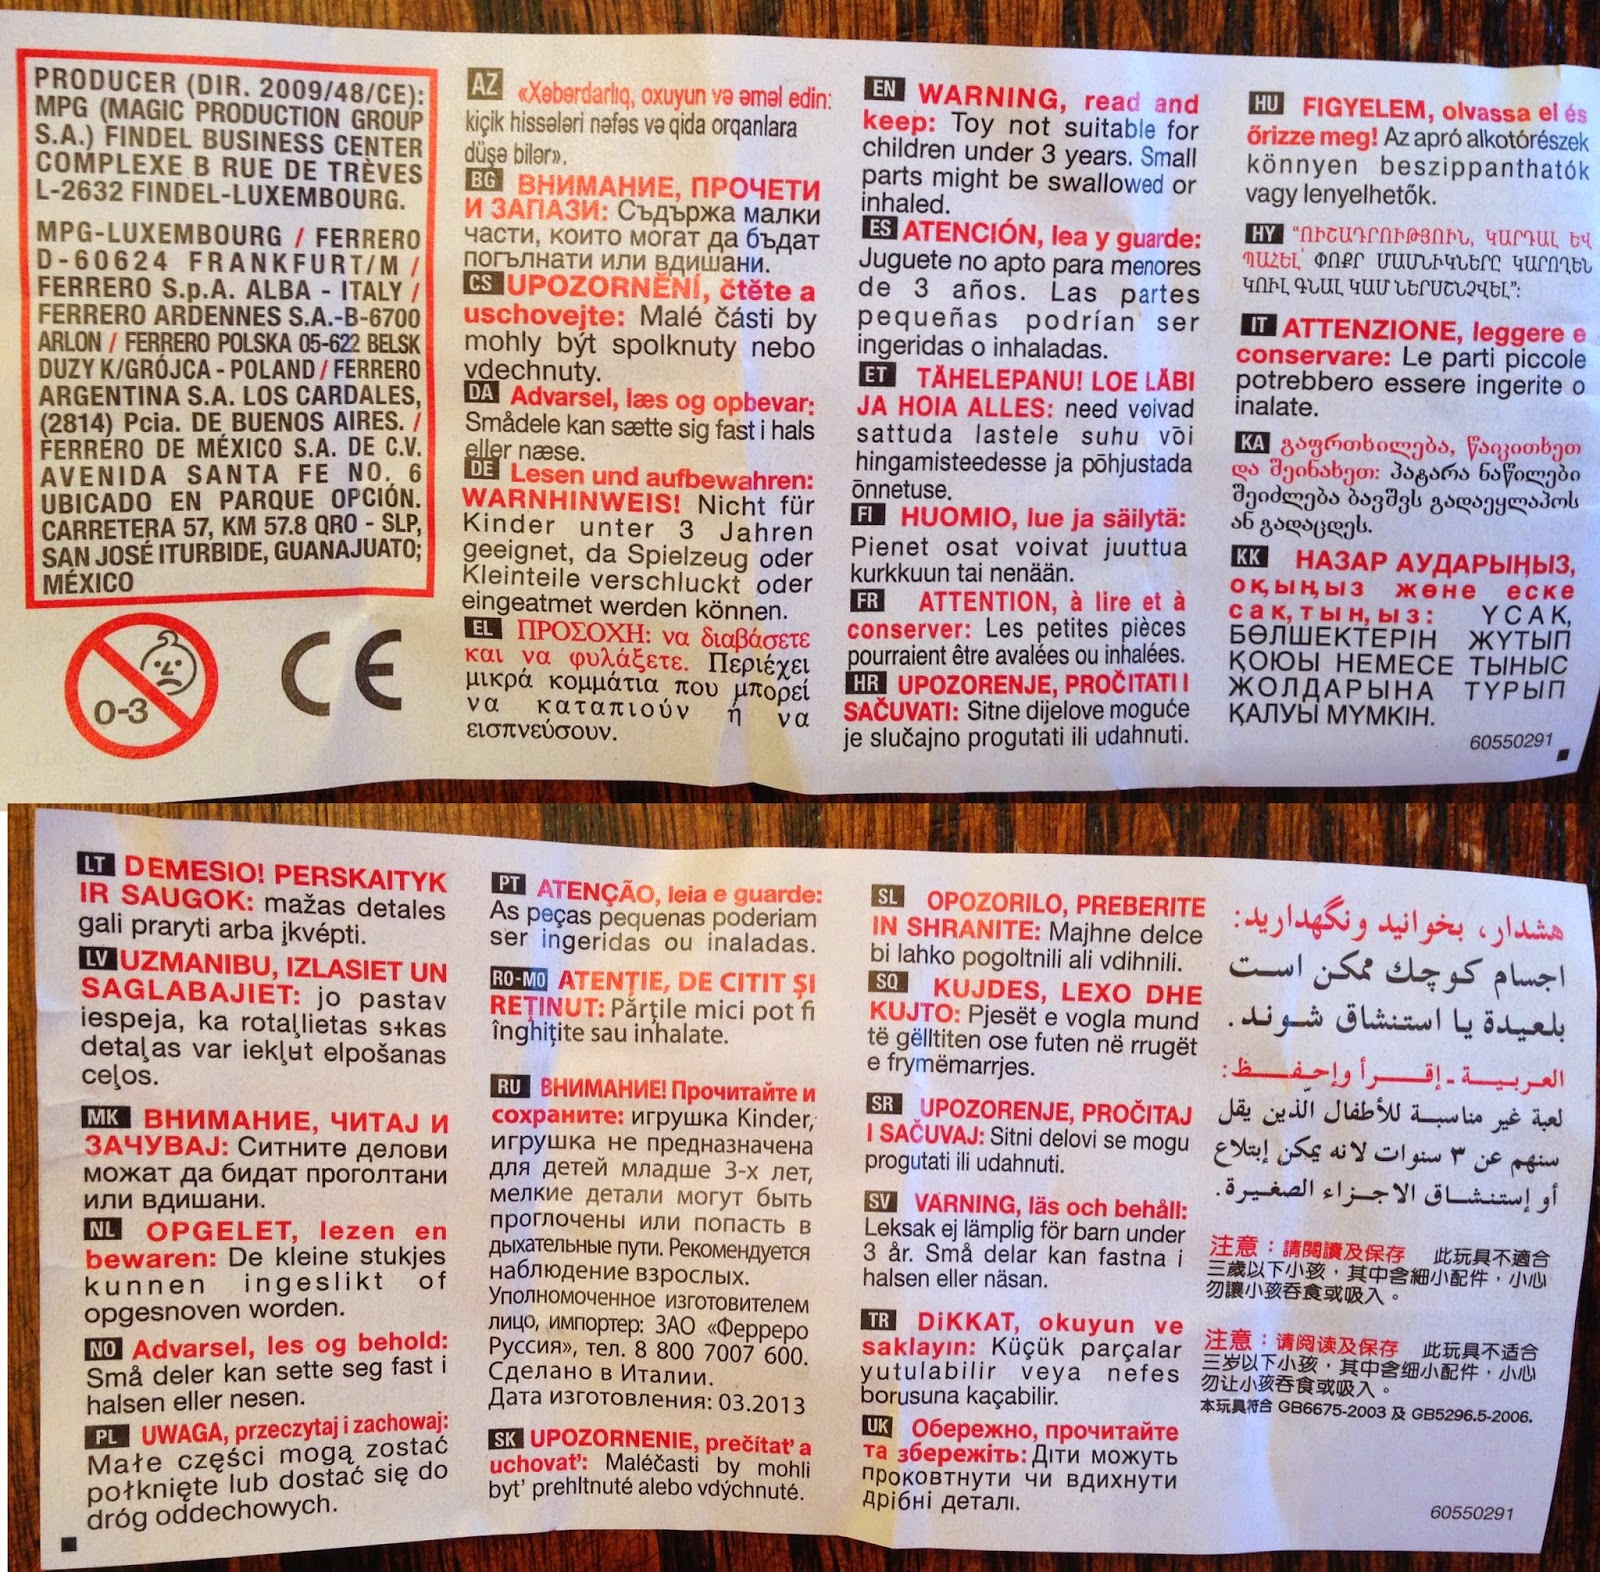 PRODUCER (DIR. 2009/48/CE):
MPG (MAGIC PRODUCTION GROUP
S.A.) FINDEL BUSINESS CENTER
COMPLEXE B RUE DE TRÈVES
L-2632 FINDEL-LUXEMBOURG.
MPG-LUXEMBOURG / FERRERO
D-60624 FRANKFURT/M /
FERRERO S.p.A. ALBA - ITALY /
FERRERO ARDENNES S.A.-B-6700
ARLON / FERRERO POLSKA 05-622 BELSK
DUZY K/GRÓJCA - POLAND / FERRERO
ARGENTINA S.A. LOS CARDALES,
(2814) Pcia. DE BUENOS AIRES. /
FERRERO DE MÉXICO S.A. DE C.V.
AVENIDA SANTA FE NO. 6
UBICADO EN PARQUE OPCIÓN.
CARRETERA 57, KM 57.8 QRO - SLP,
SAN JOSÉ ITURBIDE, GUANAJUATO;
MÉXICO
0-3
CE
AZ «Xəbərdarlıq, oxuyun və əməl edin:
kiçik hissələri nəfəs və qida orqanlara
düşə bilər».
BG ВНИМАНИЕ, ПРОЧЕТИ
И ЗАПАЗИ: Съдържа малки
части, които могат да бъдат
погълнати или вдишани.
CS UPOZORNĚNÍ, čtěte a
uschovejte: Malé části by
mohly být spolknuty nebo
vdechnuty.
DA Advarsel, læs og opbevar:
Smådele kan sætte sig fast i hals
eller næse.
DE Lesen und aufbewahren:
WARNHINWEIS! Nicht für
Kinder unter 3 Jahren
geeignet, da Spielzeug oder
Kleinteile verschluckt oder
eingeatmet werden können.
EL ΠΡΟΣΟΧΗ: να διαβάσετε
και να φυλάξετε. Περιέχει
μικρά κομμάτια που μπορεί
να καταπιούν ή να
εισπνεύσουν.
EN WARNING, read and
keep: Toy not suitable for
children under 3 years. Small
parts might be swallowed or
inhaled.
ES ATENCIÓN, lea y guarde:
Juguete no apto para menores
de 3 años. Las partes
pequeñas podrían ser
ingeridas o inhaladas.
ET TÄHELEPANU! LOE LÄBI
JA HOIA ALLES: need võivad
sattuda lastele suhu või
hingamisteedesse ja põhjustada
õnnetuse.
FI HUOMIO, lue ja säilytä:
Pienet osat voivat juuttua
kurkkuun tai nenään.
FR ATTENTION, à lire et à
conserver: Les petites pièces
pourraient être avalées ou inhalées.
HR UPOZORENJE, PROČITATI I
SAČUVATI: Sitne dijelove moguće
je slučajno progutati ili udahnuti.
HU FIGYELEM, olvassa el és
őrizze meg! Az apró alkotórészek
könnyen beszippanthatók
vagy lenyelhetők.
HY “ՈՒՇԱԴՐՈՒԹՅՈՒՆ, ԿԱՐԴԱԼ ԵՎ
ՊԱՀԵԼ՝ ՓՈՔՐ ՄԱՍՆԻԿՆԵՐԸ ԿԱՐՈՂԵՆ
ԿՈՒԼ ԳՆԱԼ ԿԱՄ ՆԵՐՍՇՆՉՎԵԼ”:
IT ATTENZIONE, leggere e
conservare: Le parti piccole
potrebbero essere ingerite o
inalate.
KA გაფრთხილება, წაიკითხეთ
და შეინახეთ: პატარა ნაწილები
შეიძლება ბავშვს გადაეყლაპოს
ან გადაცდეს.
KK НАЗАР АУДАРЫҢЫЗ,
оқыңыз және еске
сақтыңыз: ҮСАҚ,
БӨЛШЕКТЕРІН ЖҰТЫП
ҚОЮЫ НЕМЕСЕ ТЫНЫС
ЖОЛДАРЫНА ТҮРЫП
ҚАЛУЫ МҮМКІН.
60550291
LT DEMESIO! PERSKAITYK
IR SAUGOK: mažas detales
gali praryti arba įkvėpti.
LV UZMANIBU, IZLASIET UN
SAGLABAJIET: jo pastav
iespeja, ka rotaļlietas sīkas
detaļas var iekļūt elpošanas
ceļos.
MK ВНИМАНИЕ, ЧИТАЈ И
ЗАЧУВАЈ: Ситните делови
можат да бидат проголтани
или вдишани.
NL OPGELET, lezen en
bewaren: De kleine stukjes
kunnen ingeslikt of
opgesnoven worden.
NO Advarsel, les og behold:
Små deler kan sette seg fast i
halsen eller nesen.
PL UWAGA, przeczytaj i zachowaj:
Małe części mogą zostać
połknięte lub dostać się do
dróg oddechowych.
PT ATENÇÃO, leia e guarde:
As peças pequenas poderiam
ser ingeridas ou inaladas.
RO-MO ATENŢIE, DE CITIT ŞI
REŢINUT: Părţile mici pot fi
înghiţite sau inhalate.
RU ВНИМАНИЕ! Прочитайте и
сохраните: игрушка Kinder,
игрушка не предназначена
для детей младше 3-х лет,
мелкие детали могут быть
проглочены или попасть в
дыхательные пути. Рекомендуется
наблюдение взрослых.
Уполномоченное изготовителем
лицо, импортер: ЗАО «Ферреро
Руссия», тел. 8 800 7007 600.
Сделано в Италии.
Дата изготовления: 03.2013
SK UPOZORNENIE, prečítať a
uchovať: Maléčasti by mohli
byť prehltnuté alebo vdýchnuté.
SL OPOZORILO, PREBERITE
IN SHRANITE: Majhne delce
bi lahko pogoltnili ali vdihnili.
SQ KUJDES, LEXO DHE
KUJTO: Pjesët e vogla mund
të gëlltiten ose futen në rrugët
e frymëmarrjes.
SR UPOZORENJE, PROČITAJ
I SAČUVAJ: Sitni delovi se mogu
progutati ili udahnuti.
SV VARNING, läs och behåll:
Leksak ej lämplig för barn under
3 år. Små delar kan fastna i
halsen eller näsan.
TR DiKKAT, okuyun ve
saklayın: Küçük parçalar
yutulabilir veya nefes
borusuna kaçabilir.
UK Обережно, прочитайте
та збережіть: Діти можуть
проковтнути чи вдихнути
дрібні деталі.
هشدار، بخوانید ونگهدارید:
اجسام کوچك ممکن است
بلعیدة یا استنشاق شوند.
العربية - إقرأ وإحفظ:
لعبة غير مناسبة للأطفال الّذين يقل
سنهم عن ٣ سنوات لانه يمكن إبتلاع
أو إستنشاق الاجزاء الصغيرة.
注意：請閱讀及保存 此玩具不適合
三歲以下小孩，其中含細小配件，小心
勿讓小孩吞食或吸入。
注意：请阅读及保存 此玩具不适合
三岁以下小孩，其中含细小配件，小心
勿让小孩吞食或吸入。
本玩具符合 GB6675-2003 及 GB5296.5-2006.
60550291